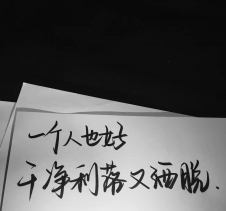 一个人也好
干净利落又洒脱.